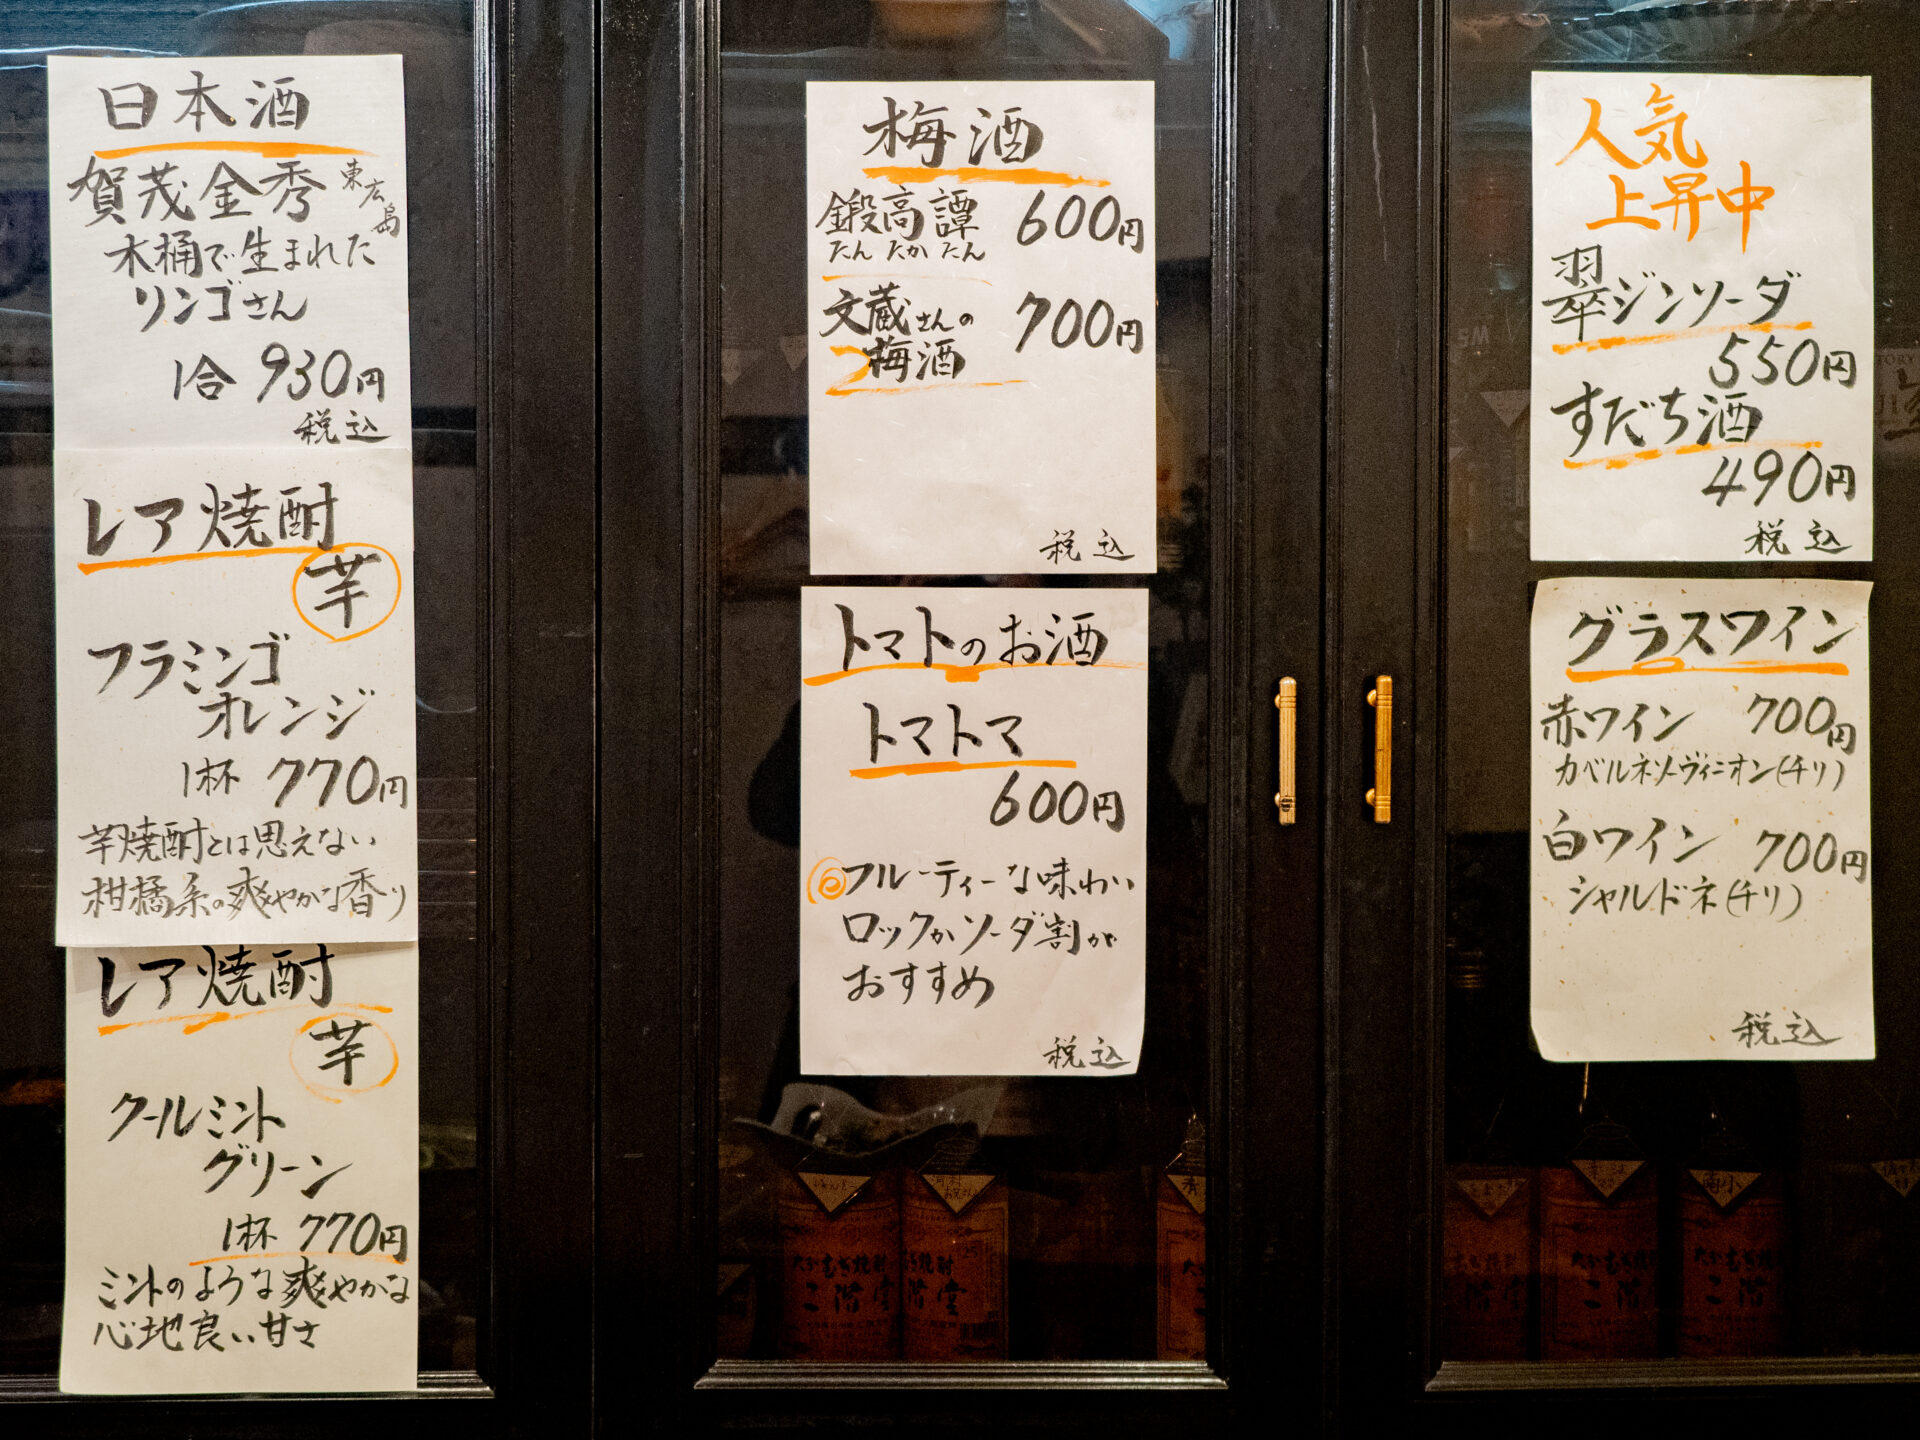 日本酒
賀茂金秀 東広島
木桶で生まれた
リンゴさん
1合 930円
税込
レア焼酎
芋
フラミンゴ
オレンジ
1杯 770円
芋焼酎とは思えない
柑橘系の爽やかな香り
レア焼酎
芋
クールミント
グリーン
1杯 770円
ミントのような爽やかな
心地良い甘さ
梅酒
鍛高譚 600円
たん たか たん
文蔵さんの 700円
梅酒
税込
トマトのお酒
トマトマ
600円
フルーティーな味わい
ロックかソーダ割が
おすすめ
税込
人気
上昇中
翠ジンソーダ
550円
すだち酒
490円
税込
グラスワイン
赤ワイン 700円
カベルネソーヴィニオン(チリ)
白ワイン 700円
シャルドネ(チリ)
税込
二階堂
二階堂
二階堂